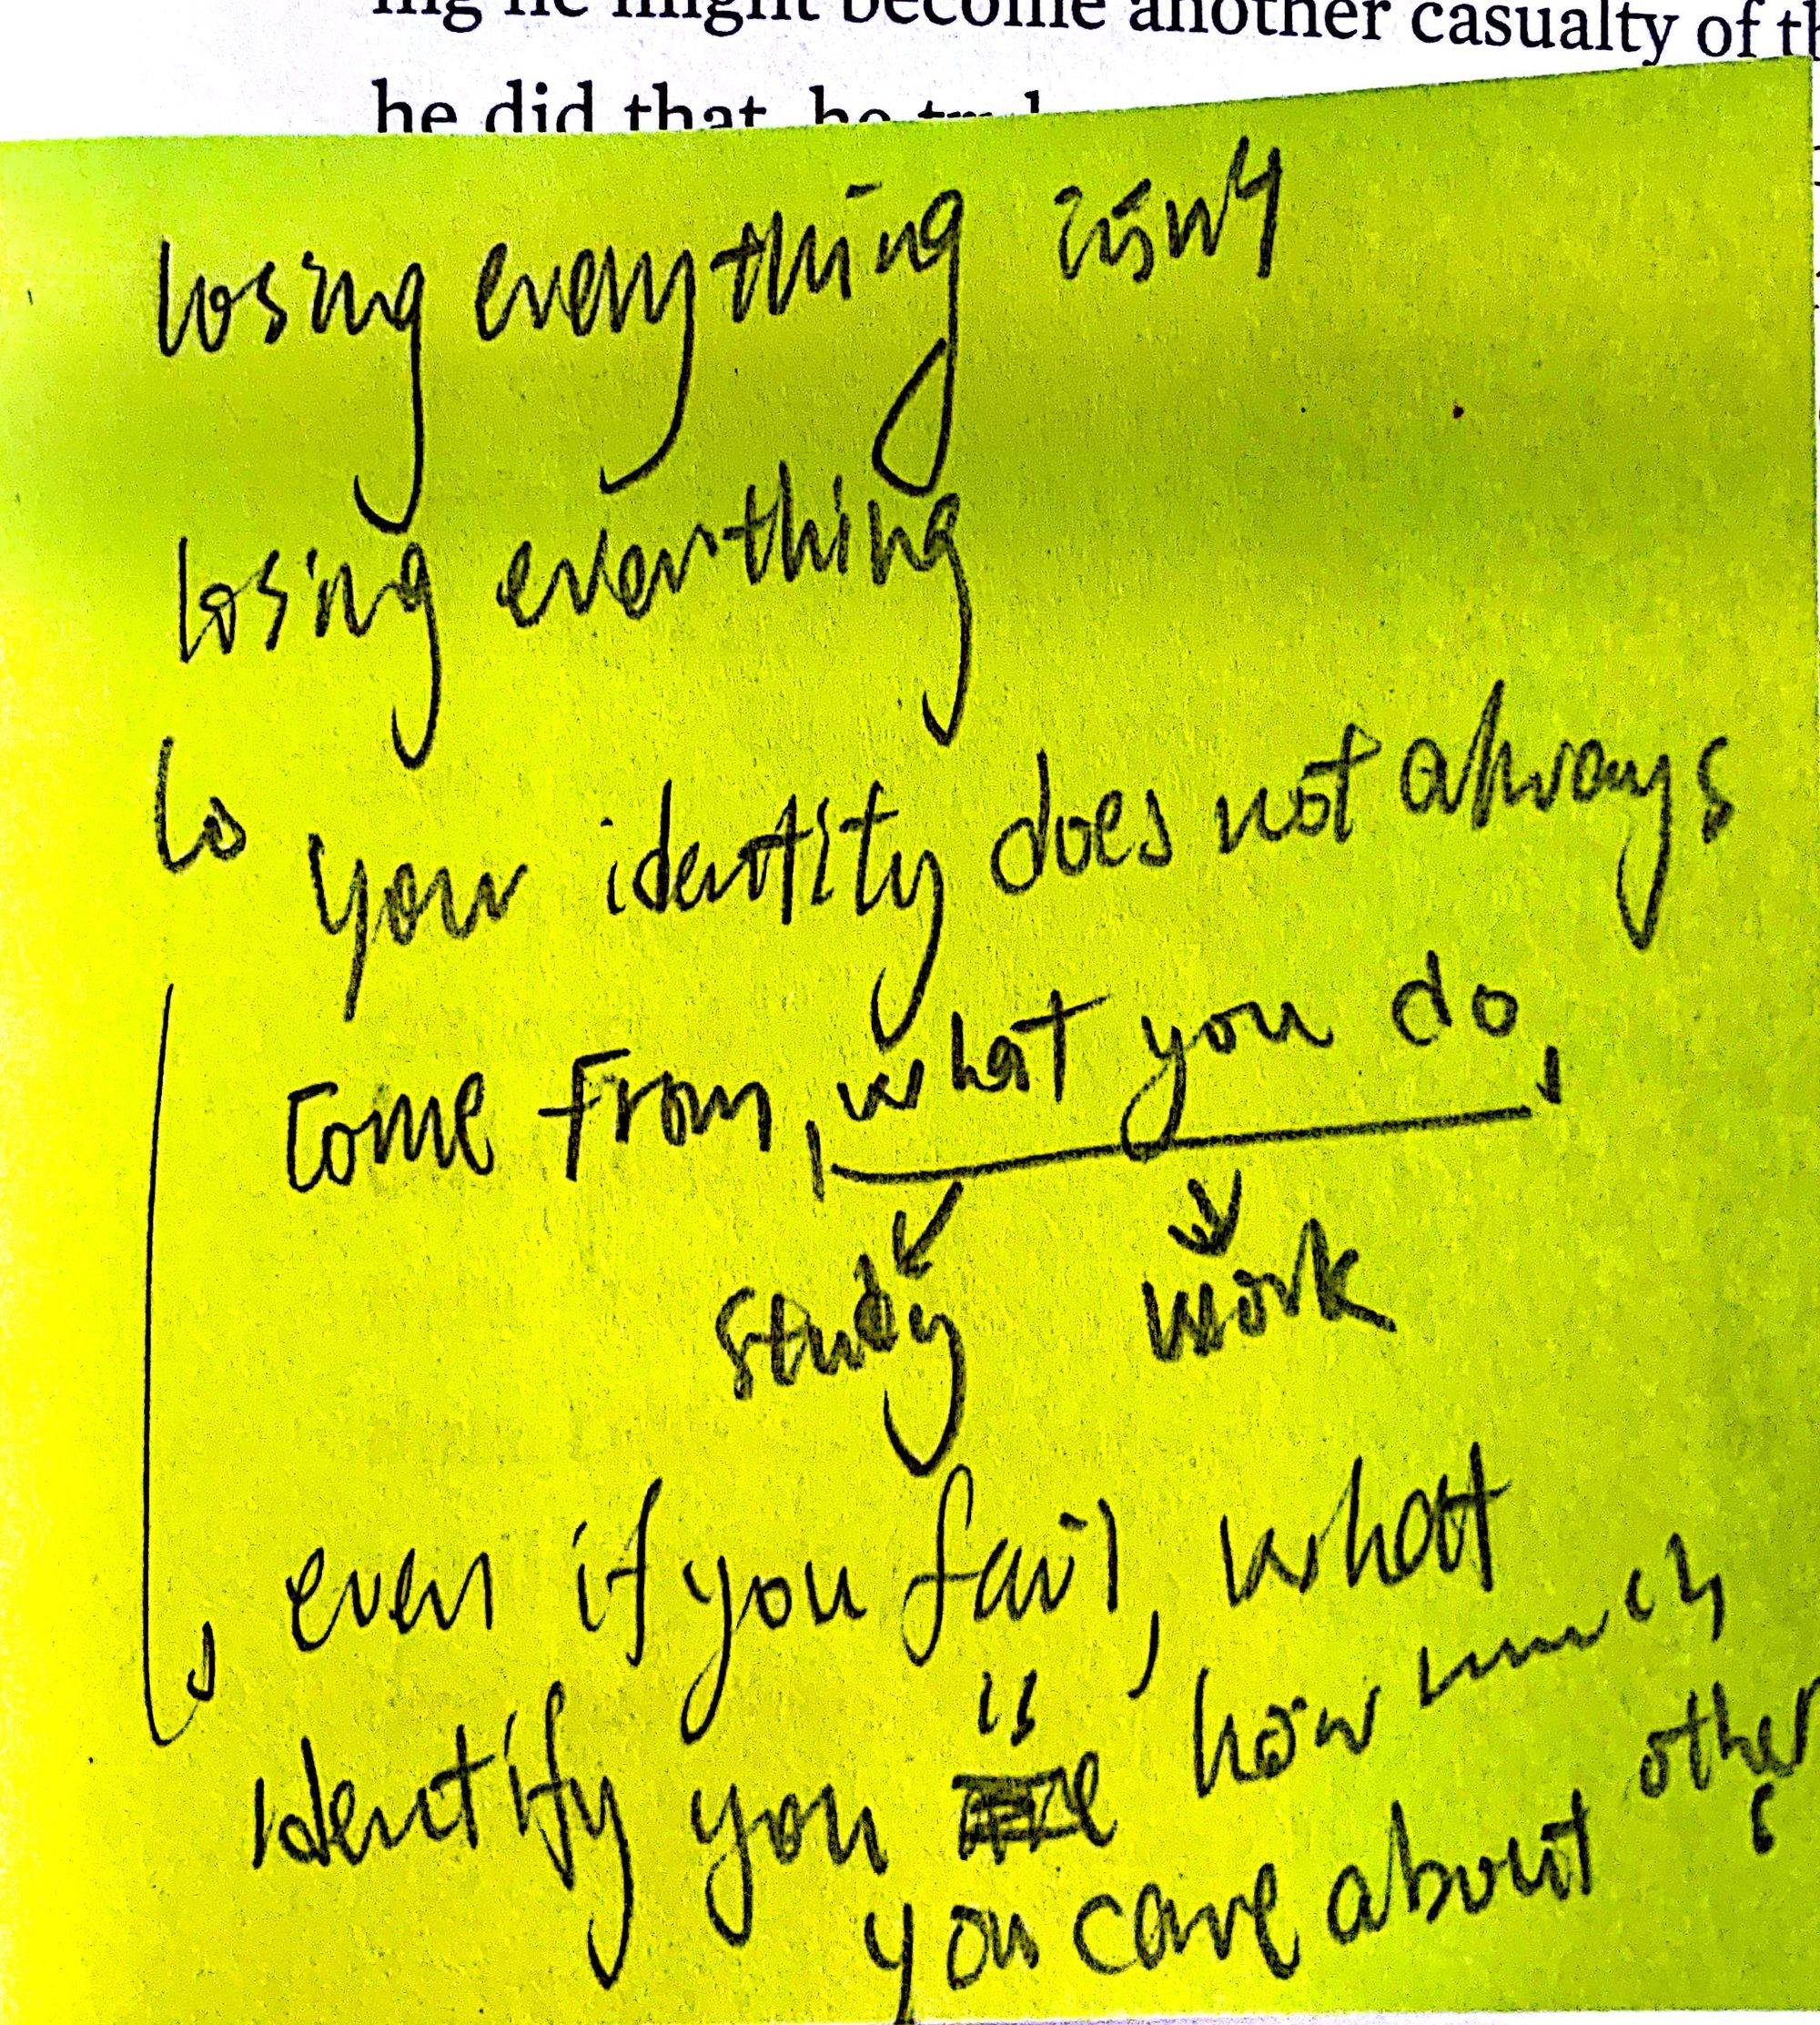 ing he might become another casualty of th
he did that, he
losing everything isn't
losing everthing
↳ your identity does not always
come from, what you do,
study work
even if you fail, what
identify you is how much
you care about others